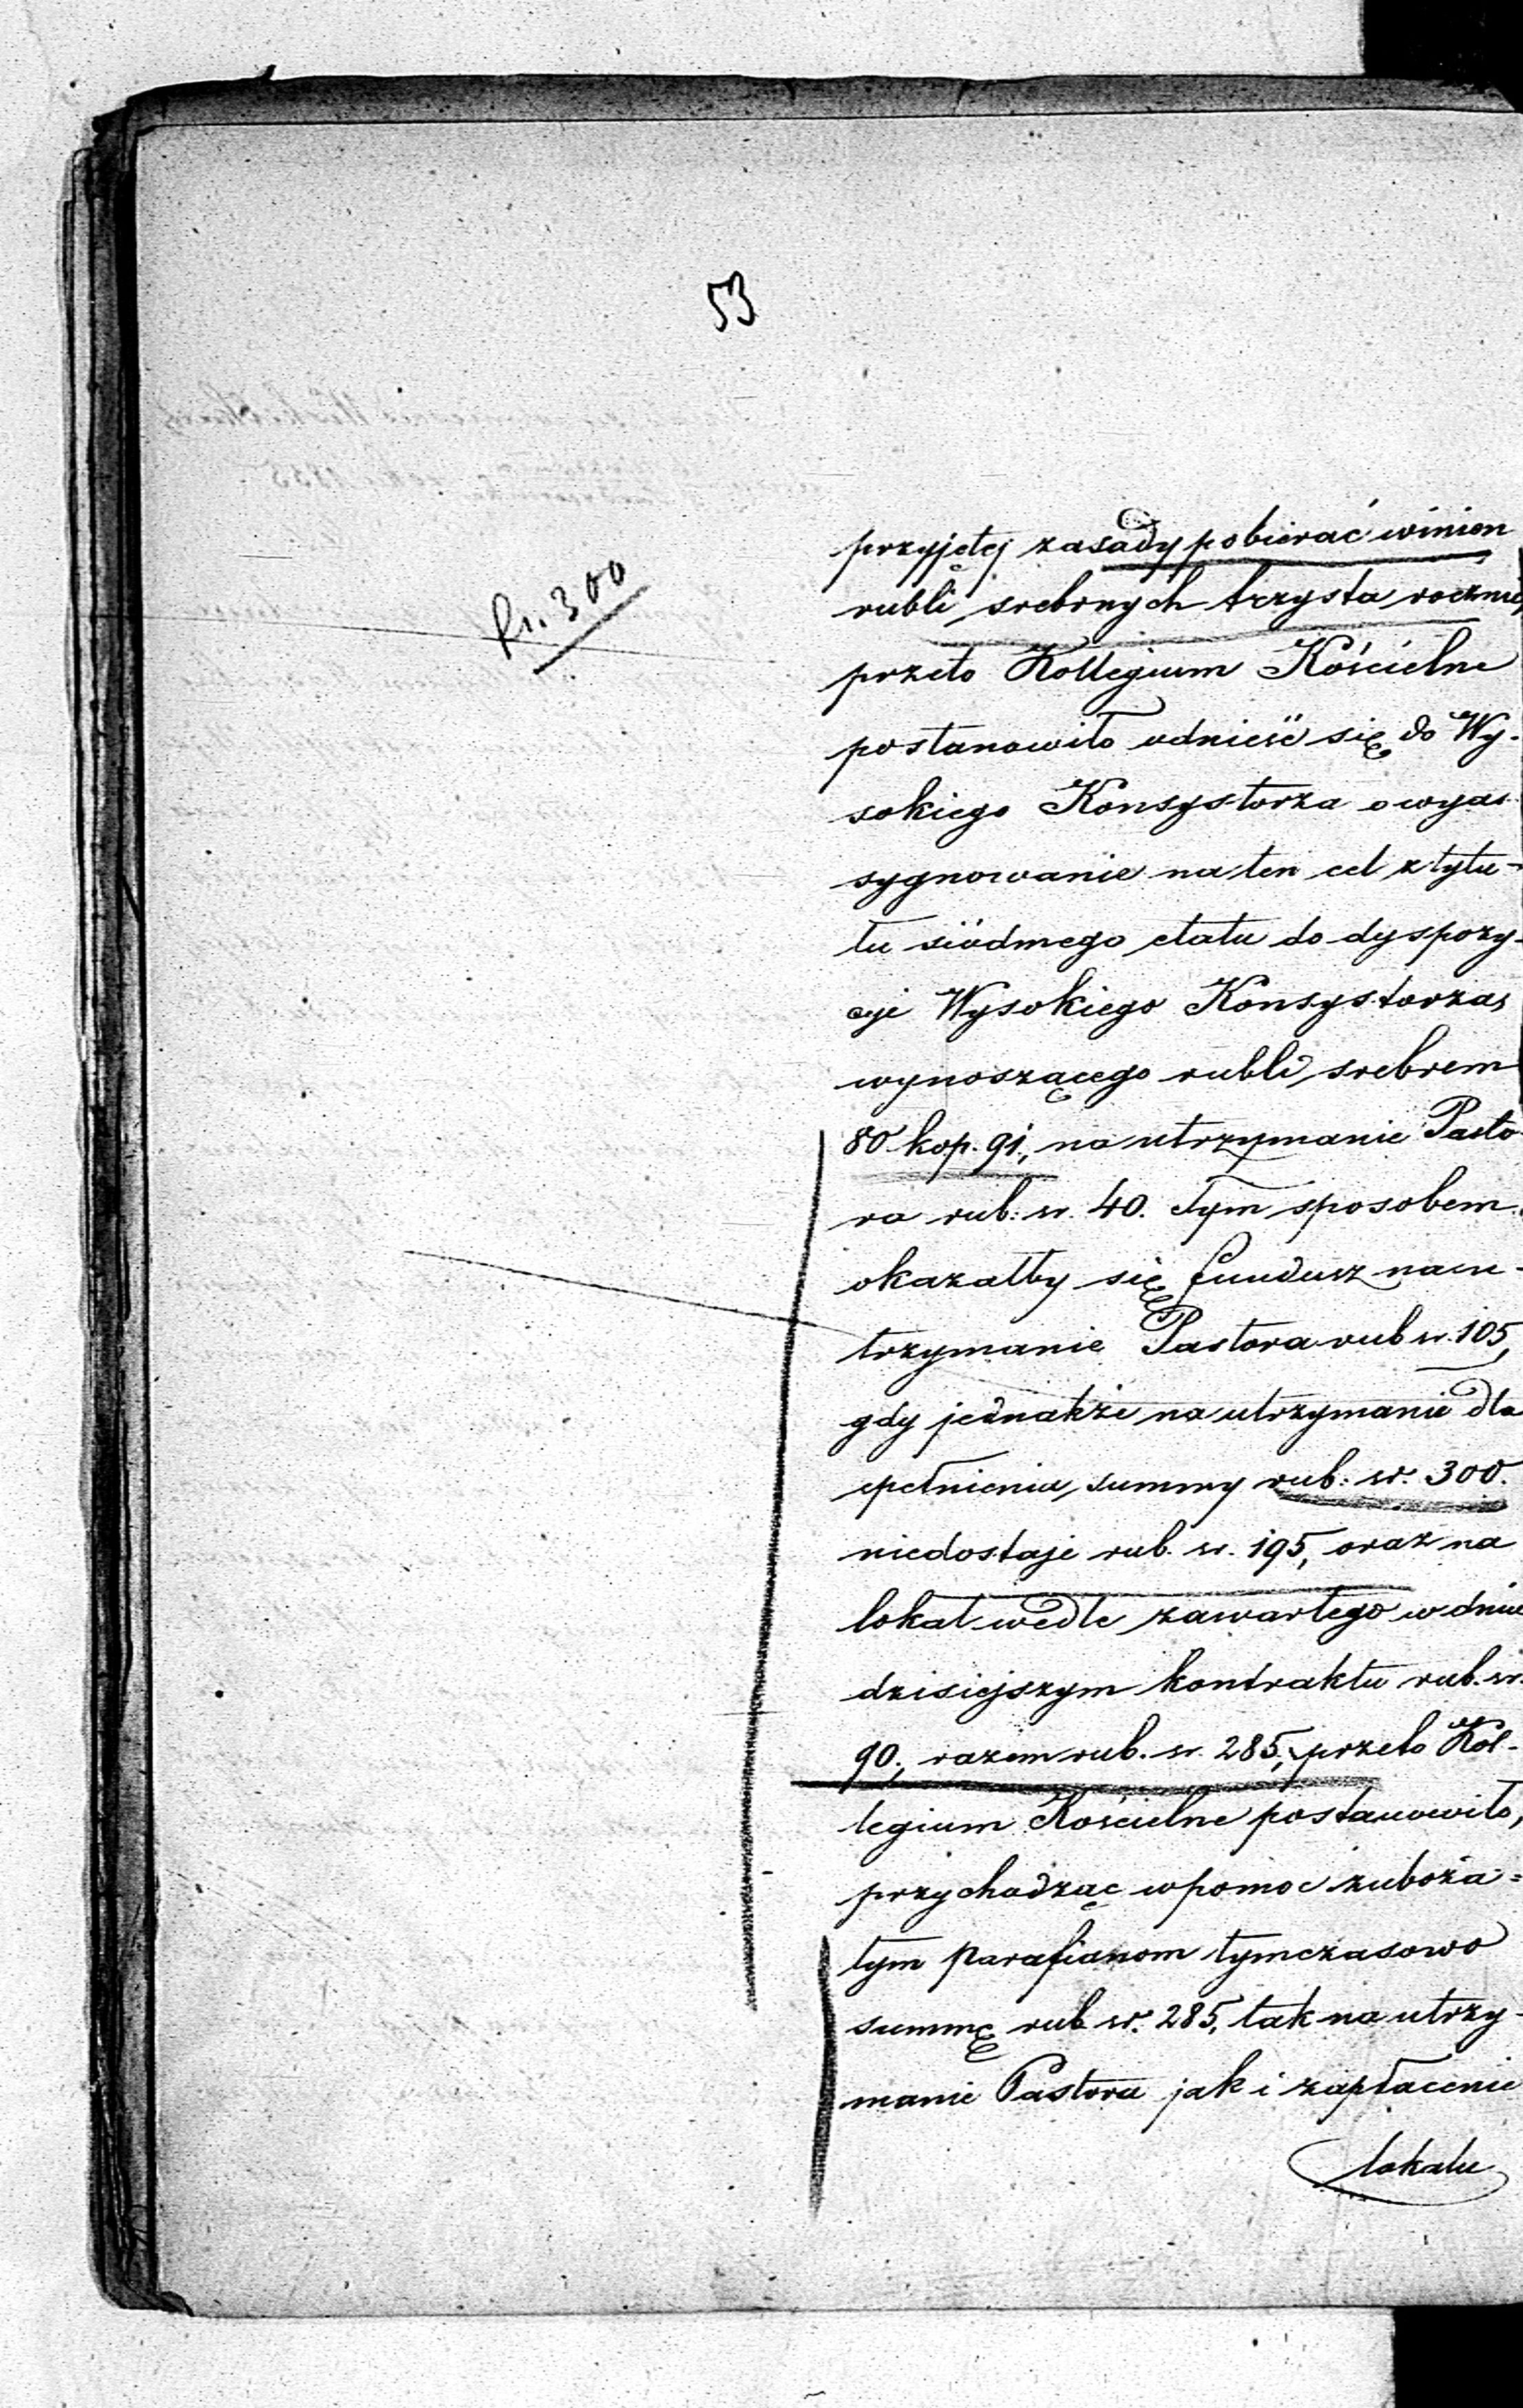 53
Rs. 300
przyjętej zasady pobierać winien
rubli srebrnych trzysta rocznie,
przeto Kollegium Kościelne
postanowiło odnieść się do Wy-
sokiego Konsystorza o wyas-
sygnowanie na ten cel z tytu-
łu siódmego etatu do dyspozy-
cyi Wysokiego Konsystorza,
wynoszącego rubli srebrem
80 kop. 91, na utrzymanie Pasto-
ra rub: sr. 40. Tym sposobem
okazałby się fundusz na u-
trzymanie Pastora rub sr. 105,
gdy jednakże na utrzymanie dla
spełnienia summy rub: sr. 300.
niedostaje rub. sr. 195, oraz na
lokal wedle zawartego w dniu
dzisiejszym kontraktu rub. sr.
90., razem rub. sr. 285, przeto Kol-
legium Kościelne postanowiło,
przychodząc w pomoc zuboża-
łym parafianom tymczasowo
summę rub sr. 285, tak na utrzy-
manie Pastora jak i zapłacenie
lokalu